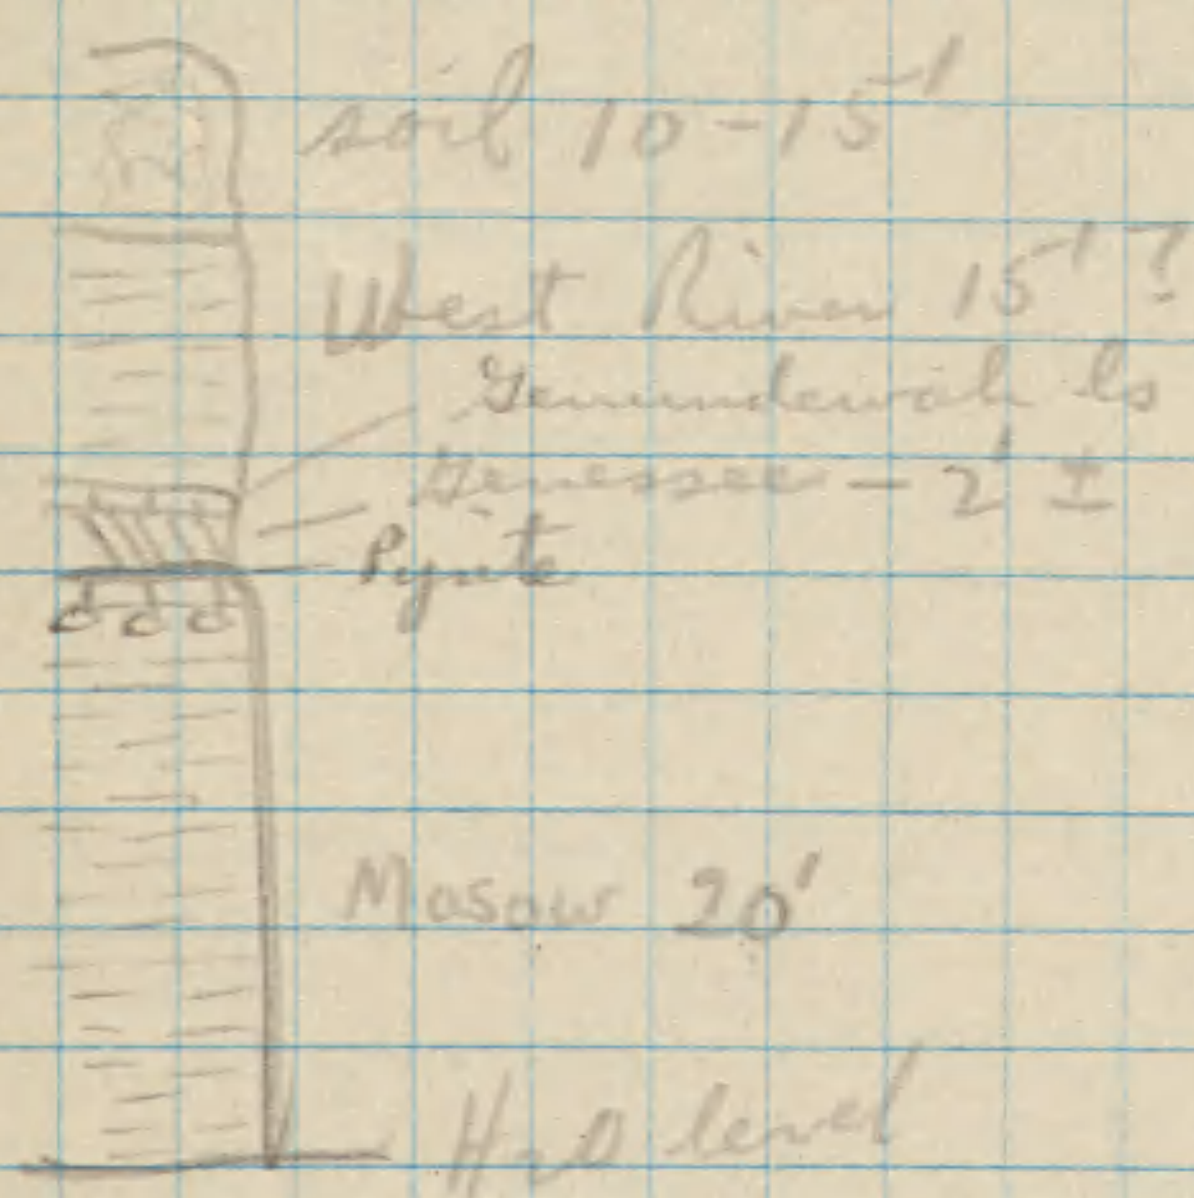 soil 10-15'
West River 15' ?
Genundewah ls
Genessee - 2' ±
Pyrite
Moscow 20'
H2O level